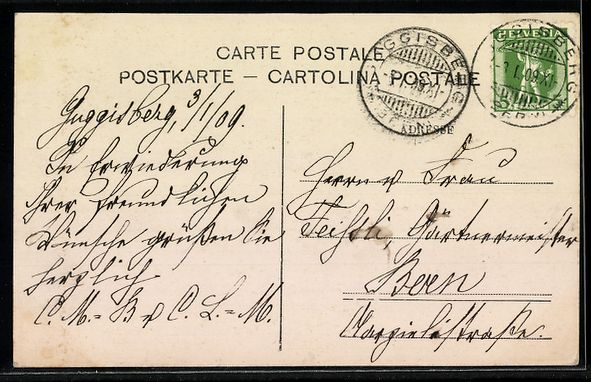 CARTE POSTALE
POSTKARTE — CARTOLINA POSTALE
GUGGISBERG
HELVETIA
ADRESSE
Guggisberg, 3/I/09.
In Erwiederung
Ihrer freundlichen
Wünsche grüßen Sie
herzlich
C. M.= B u C. L.= M.
Herrn u Frau
Gärtnermeister
Bern
straße.